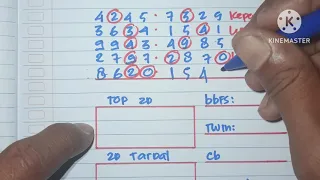 4245.7329 Kepa
3634.1541
9943.4985
2797.2870
B620 154
KINEMASTER
TOP 2D
BBFS:
TWIN:
2D TARDAL
CB